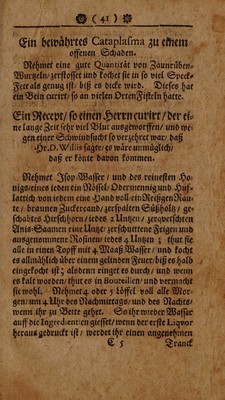 (41)
Ein bewährtes Cataplasma zu einem
offenen Schaden.
Nehmet eine gute Quantität von Zaunrüben-
Wurtzeln/ zerstosset und kochet sie in so viel Speck-
Fett als genug ist; biß es dicke wird. Dieses hat
ein Bein curirt/ so an vielen Orten Fisteln hatte.
Ein Recept/ so einen Herrn curirt/ der ei-
ne lange Zeit sehr viel Blut ausgeworffen/ und we-
gen einer Schwindsucht so verzehret war/ daß
Hr. D. Willis sagte/ es wäre unmüglich/
daß er könte davon kommen.
Nehmet Isop-Wasser/ und des reinesten Ho-
nigs/ eines ieden ein Nössel/ Odermennig und Huf-
lattich von iedem eine Hand voll/ ein Reisgen Rau-
te/ braunen Zuckerand/ zerspalten Süßholtz/ ge-
schabtes Hirschhorn/ iedes 2 Untzen/ zerquetschten
Anis-Saamen eine Untz/ zerschnittene Feigen und
ausgenommene Rosinen iedes 4 Untzen; thut sie
alle in einen Topff mit 4 Maaß Wasser/ und kocht
es allmählich über einem gelinden Feuer/ biß es halb
eingekocht ist; alsdenn ringet es durch/ und wenn
es kalt worden/ thut es in Bouteilien/ und vermacht
sie wohl. Nehmet 4 oder 5 Löffel voll alle Mor-
gen/ um 4 Uhr des Nachmittags/ und des Nachts/
wenn ihr zu Bette gehet. So ihr wieder Wasser
auff die Ingredientien giesset/ wenn der erste Liqvor
heraus gedruckt ist/ werdet ihr einen angenehmen
C 5 Tranck